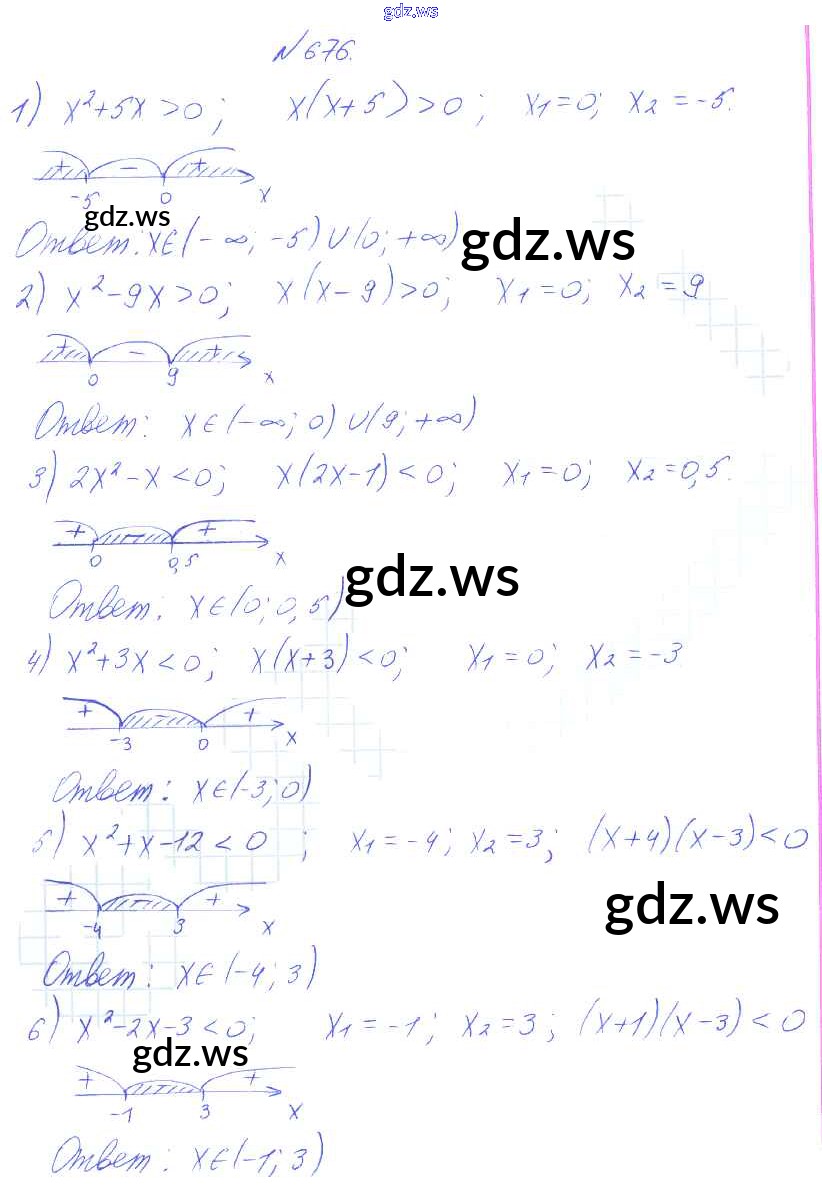 gdz.ws
№676.
1) x²+5x>0; x(x+5)>0; x1=0; x2=-5.
+ - +
-5 0 x
gdz.ws
Ответ: x∈(-∞; -5)∪(0; +∞)
gdz.ws
2) x²-9x>0; x(x-9)>0; x1=0; x2=9
+ - +
0 9 x
Ответ: x∈(-∞; 0)∪(9; +∞)
3) 2x²-x<0; x(2x-1)<0; x1=0; x2=0,5.
+ - +
0 0,5 x
gdz.ws
Ответ: x∈(0; 0,5)
4) x²+3x<0; x(x+3)<0; x1=0; x2=-3
+ - +
-3 0 x
Ответ: x∈(-3; 0)
5) x²+x-12<0; x1=-4; x2=3; (x+4)(x-3)<0
+ - +
-4 3 x
gdz.ws
Ответ: x∈(-4; 3)
6) x²-2x-3<0; x1=-1; x2=3; (x+1)(x-3)<0
gdz.ws
+ - +
-1 3 x
Ответ: x∈(-1; 3)